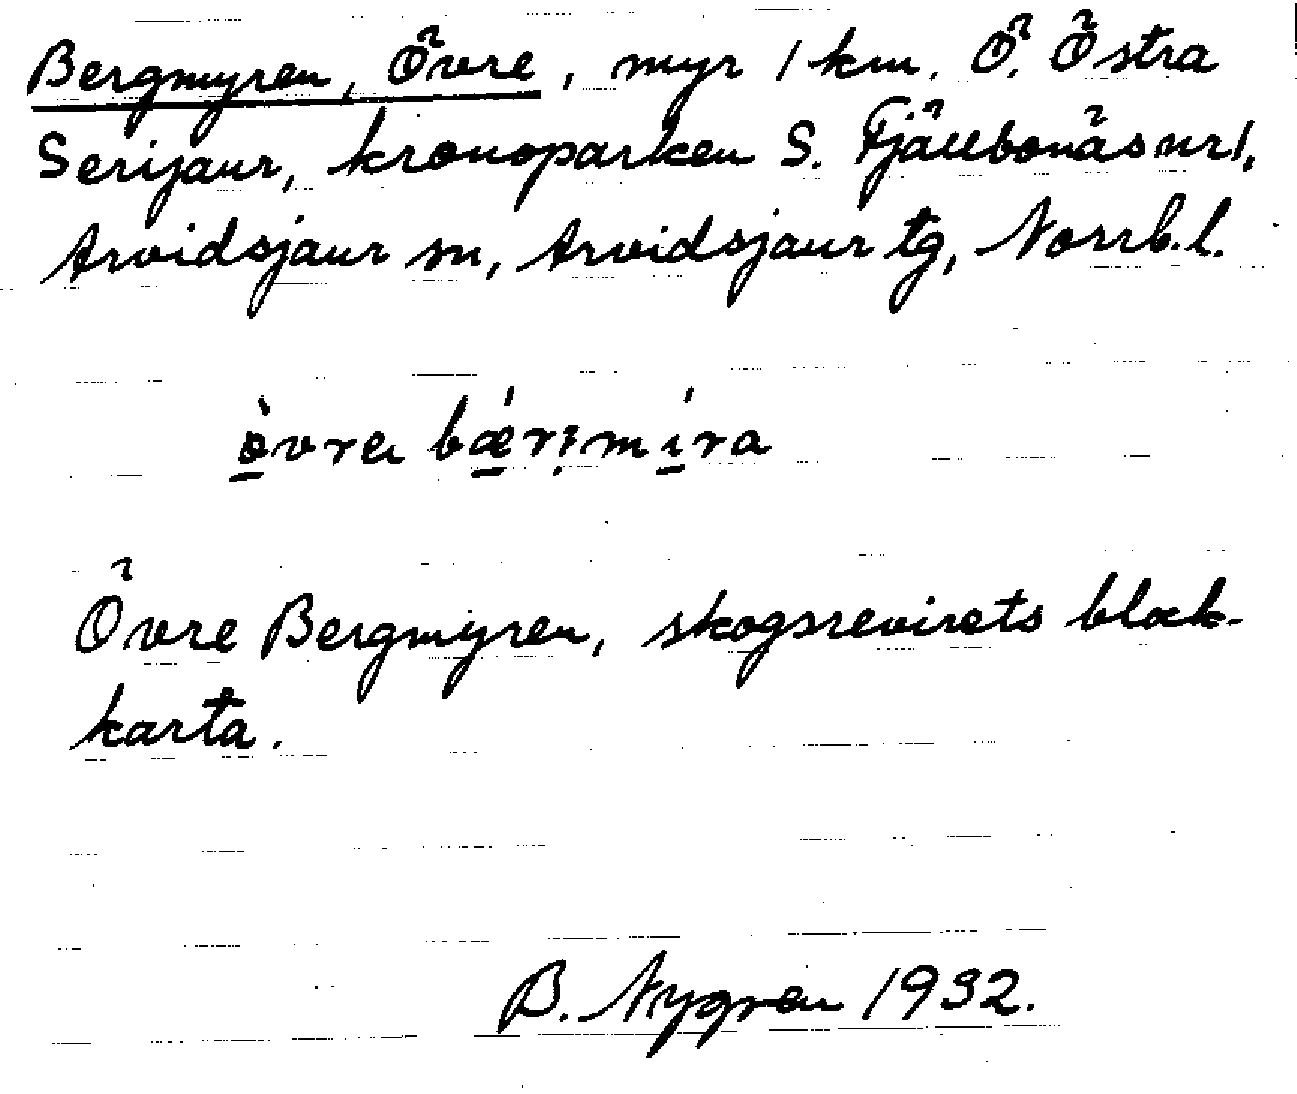 Bergmyren, Övre, myr 1 km. Ö. Östra
Serijaur, kronoparken S. Fjällbonäs nr 1,
Arvidsjaur sn, Arvidsjaur tg, Norrb. l.
Övre Bergmyren, skogsrevirets block-
karta.
B. Nygren 1932.